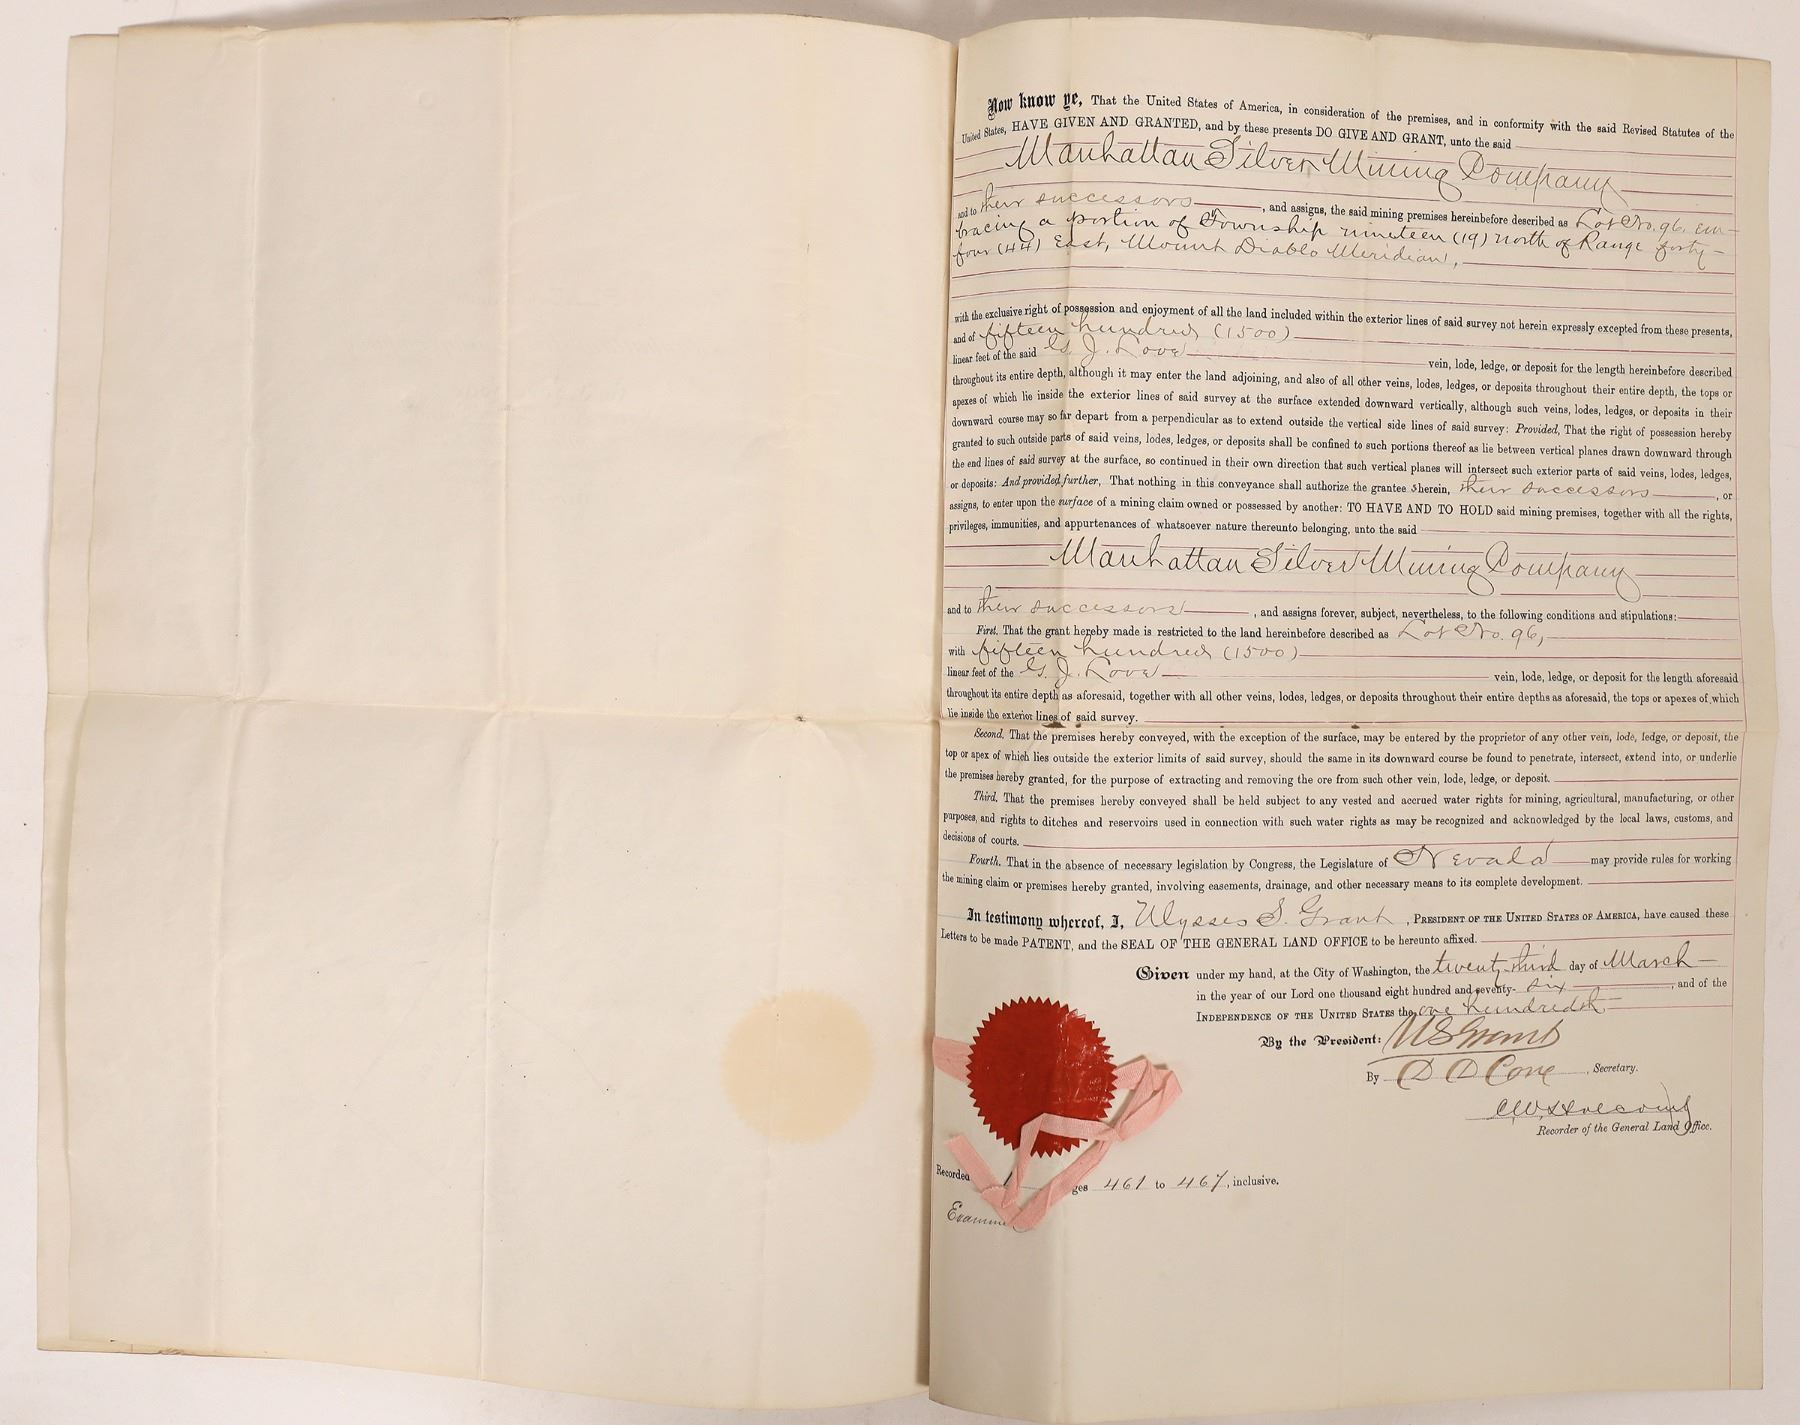 Now know ye, That the United States of America, in consideration of the premises, and in conformity with the said Revised Statutes of the
United States, HAVE GIVEN AND GRANTED, and by these presents DO GIVE AND GRANT, unto the said
Manhattan Silver Mining Company
and to their successors, and assigns, the said mining premises hereinbefore described as Lot No. 96, em-
bracing a portion of Township nineteen (19) north of Range forty-
four (44) East, Mount Diablo Meridian,
with the exclusive right of possession and enjoyment of all the land included within the exterior lines of said survey not herein expressly excepted from these presents,
and of fifteen hundred (1500)
linear feet of the said G. J. Love vein, lode, ledge, or deposit for the length hereinbefore described
throughout its entire depth, although it may enter the land adjoining, and also of all other veins, lodes, ledges, or deposits throughout their entire depth, the tops or
apexes of which lie inside the exterior lines of said survey at the surface extended downward vertically, although such veins, lodes, ledges, or deposits in their
downward course may so far depart from a perpendicular as to extend outside the vertical side lines of said survey: Provided, That the right of possession hereby
granted to such outside parts of said veins, lodes, ledges, or deposits shall be confined to such portions thereof as lie between vertical planes drawn downward through
the end lines of said survey at the surface, so continued in their own direction that such vertical planes will intersect such exterior parts of said veins, lodes, ledges,
or deposits: And provided further, That nothing in this conveyance shall authorize the grantee s herein, their successors, or
assigns, to enter upon the surface of a mining claim owned or possessed by another: TO HAVE AND TO HOLD said mining premises, together with all the rights,
privileges, immunities, and appurtenances of whatsoever nature thereunto belonging, unto the said
Manhattan Silver Mining Company
and to their successors, and assigns forever, subject, nevertheless, to the following conditions and stipulations:
First. That the grant hereby made is restricted to the land hereinbefore described as Lot No. 96,
with fifteen hundred (1500)
linear feet of the G. J. Love vein, lode, ledge, or deposit for the length aforesaid
throughout its entire depth as aforesaid, together with all other veins, lodes, ledges, or deposits throughout their entire depths as aforesaid, the tops or apexes of which
lie inside the exterior lines of said survey.
Second. That the premises hereby conveyed, with the exception of the surface, may be entered by the proprietor of any other vein, lode, ledge, or deposit, the
top or apex of which lies outside the exterior limits of said survey, should the same in its downward course be found to penetrate, intersect, extend into, or underlie
the premises hereby granted, for the purpose of extracting and removing the ore from such other vein, lode, ledge, or deposit.
Third. That the premises hereby conveyed shall be held subject to any vested and accrued water rights for mining, agricultural, manufacturing, or other
purposes, and rights to ditches and reservoirs used in connection with such water rights as may be recognized and acknowledged by the local laws, customs, and
decisions of courts.
Fourth. That in the absence of necessary legislation by Congress, the Legislature of Nevada may provide rules for working
the mining claim or premises hereby granted, involving easements, drainage, and other necessary means to its complete development.
In testimony whereof, I, Ulysses S. Grant, PRESIDENT OF THE UNITED STATES OF AMERICA, have caused these
Letters to be made PATENT, and the SEAL OF THE GENERAL LAND OFFICE to be hereunto affixed.
Given under my hand, at the City of Washington, the twenty-third day of March
in the year of our Lord one thousand eight hundred and seventy-six, and of the
INDEPENDENCE OF THE UNITED STATES the one hundredth
By the President: U S Grant
By D D Cone, Secretary.
Recorder of the General Land Office.
Recorded 461 to 467, inclusive.